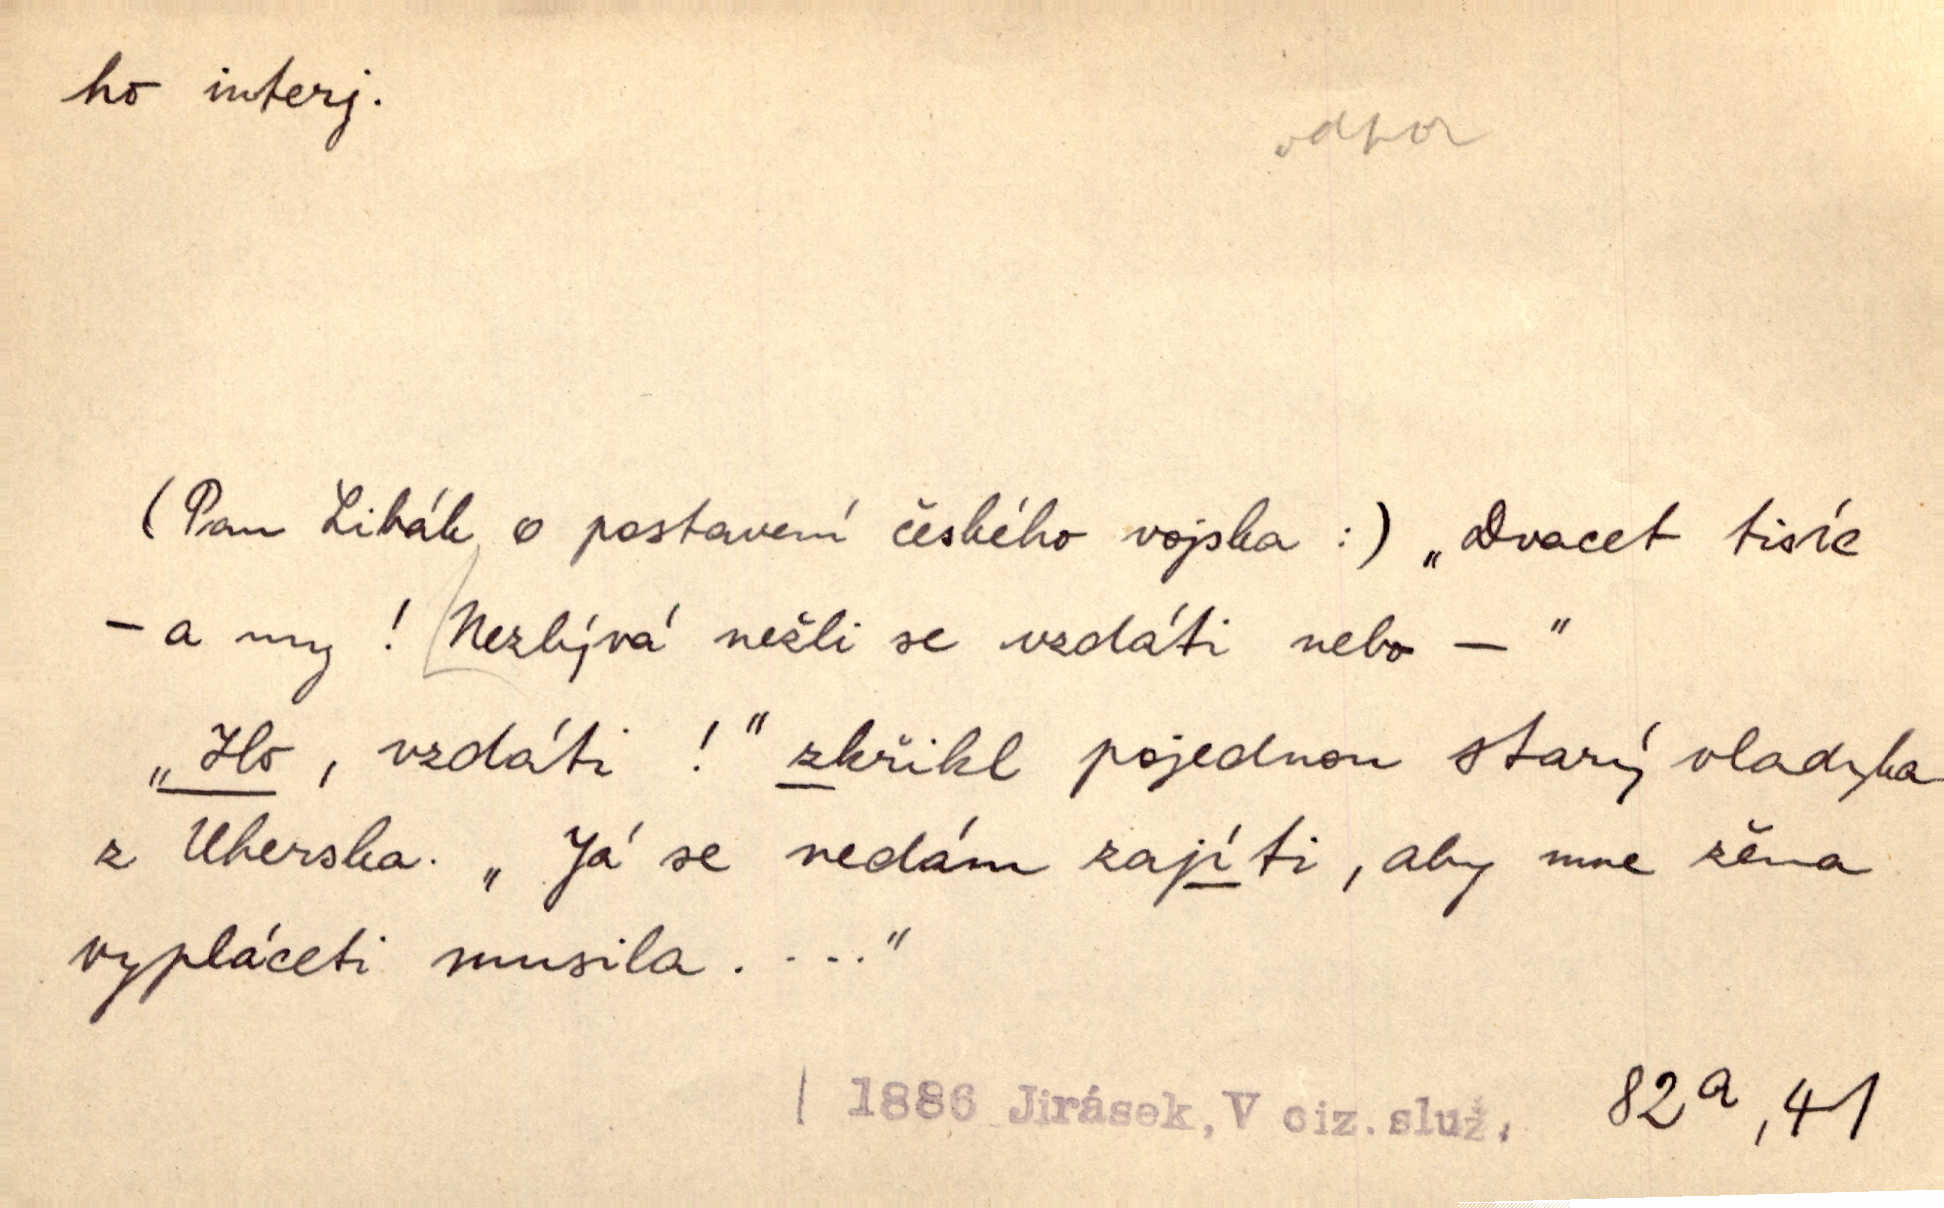 ho interj.
odpor
(Pan Libák o postavení českého vojska :) „Dvacet tisíc
– a my ! Nezbývá nežli se vzdáti nebo – "
„Ho, vzdáti ! " zkřikl pojednou starý vladyka
z Uherska. „Já se nedám zajíti, aby mne žena
vypláceti musila. ...."
| 1886 Jirásek, V ciz. služ. 82a, 41